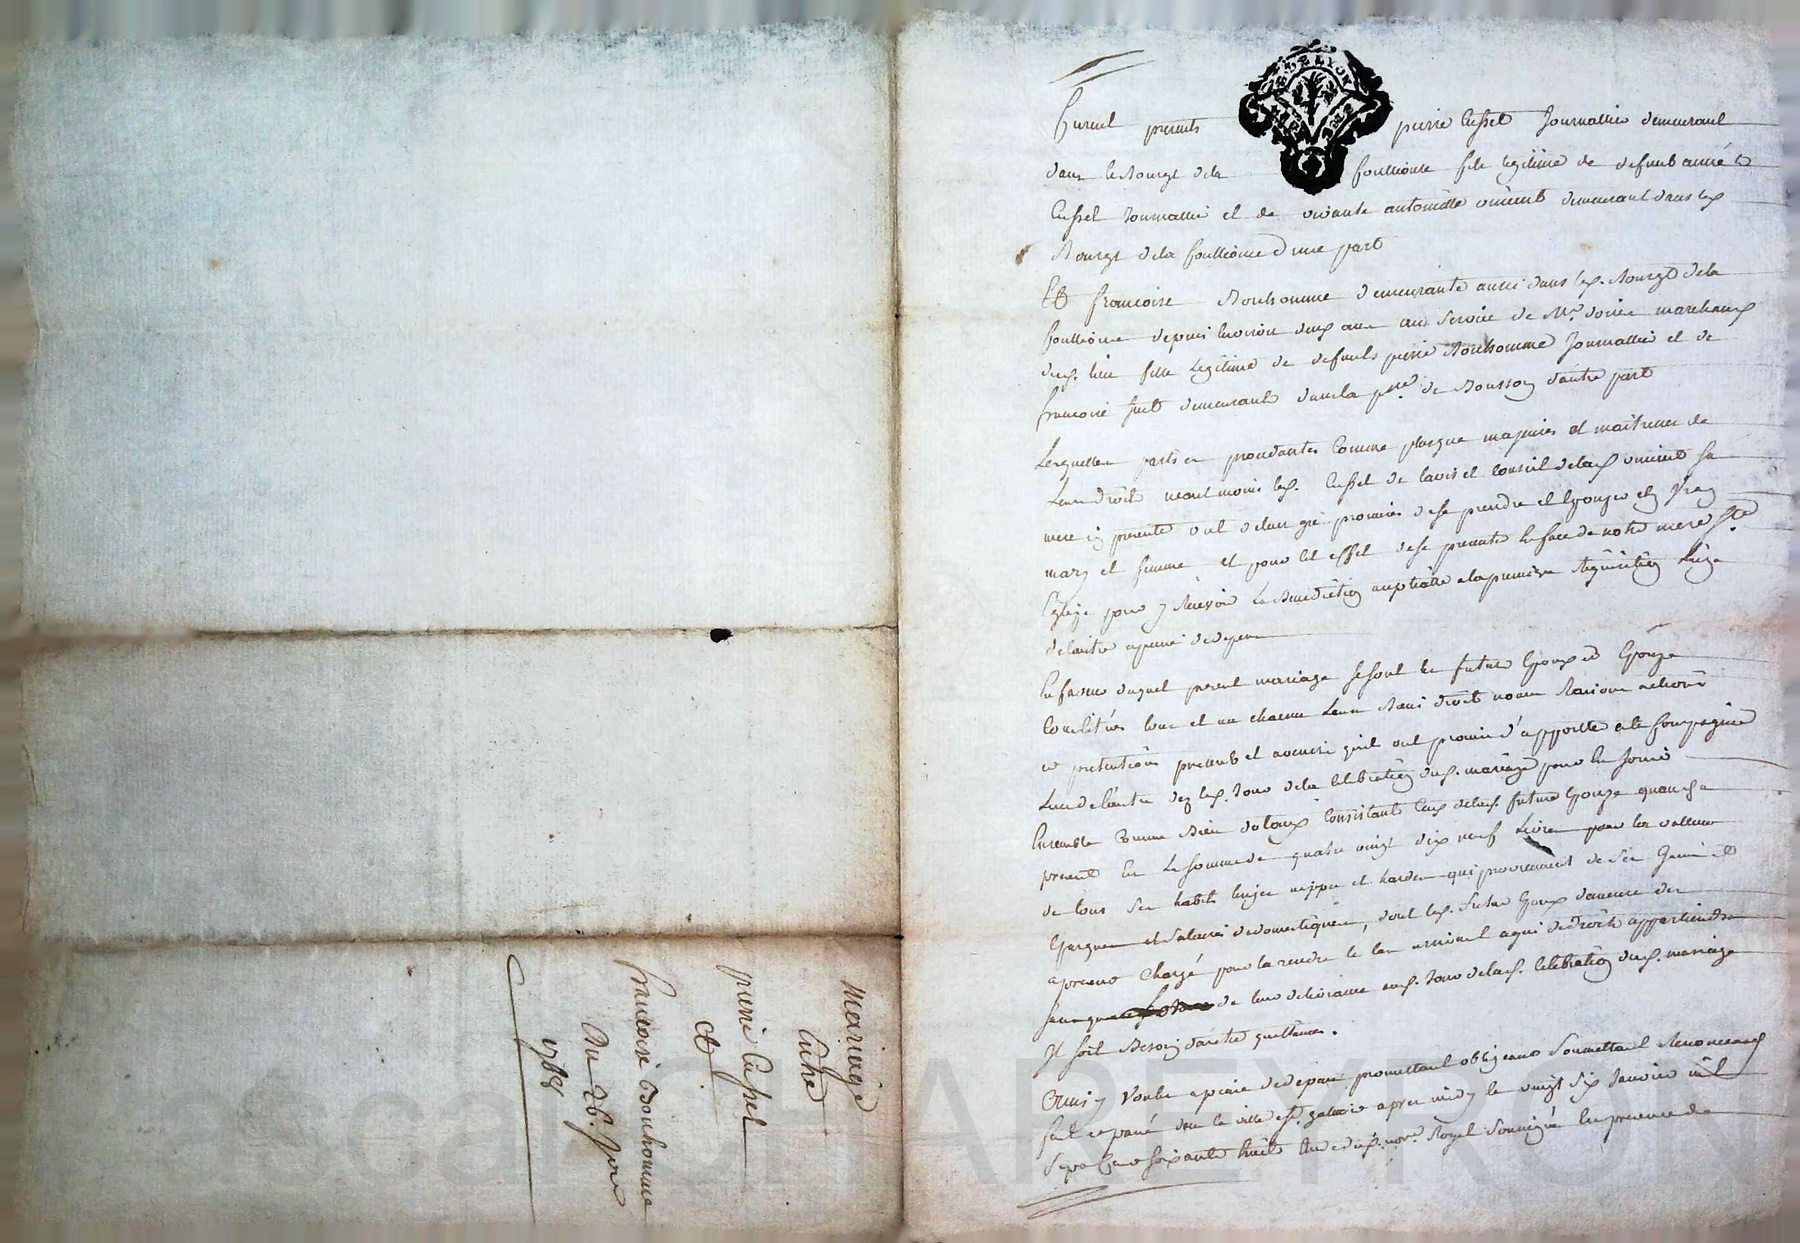 mariage
Entre
pierre Cussel
Et
francoise Bonhomme
Du 26. Jer
1768
furent presents pierre Cussel Journallier demeurant
dans le Bourgt dela fouillouse fils legitime de defunt
Cussel Journallier et de vivante antoinette vincent demeurant dans led
Bourgt dela fouillouse d'une part
Et francoise Bonhomme demeurante aussi dans led. Bourgt dela
fouillouse depuis environ deux ans au service de Mr. marchand
dud. lieu fille legitime de defunt pierre Bonhomme Journallier et de
francoise demeurante dans la psse. de d'autre part
Lesquelles parties procedantes comme majeures et maitresses de
Leurs droits neantmoins led. Cussel de l'avis et conseil delad vincent sa
mere icy presente ont de leur gré promis de se prendre et Epouser en vray
mary et femme et pour cet effet de se presenter en face de notre mere ste
Eglise pour y Recevoir La Benediction nuptialle a la premiere Requisition L'un
de l'autre a peine de depens
En faveur duquel present mariage se sont les futurs Epoux et Epouze
Constitués tous et un chacun Leurs Biens droits noms Raisons actions
et pretentions presents et avenir qu'ils ont promis d'apporter a la Compagnie
L'un de l'autre dez led. Jour dela celebration dud. mariage pour en Jouir
Ensemble comme Biens dotaux Consistants ceux delad. future Epouze quand a
present En La somme de quatre vingt dix neuf Livres pour la valleur
de tous ses habits linges nippes et hardes qui proviennent de ses Gains et
Epargnes et salaires de domestique, dont led. futur Epoux demeure des
apresent Chargé pour la rendre le cas arrivant a qui de droit appartiendra
sans que de leur delivrance aud. Jour delad. celebration dud. mariage
Il soit Besoin d'autre quittance.
Ainsy Voulu a peine de depens promettant obligeant soumettant Renonceant
fait et passé dans la ville St. galmier apres midy le vingt six Janvier mil
sept cent soixante huit Royal soussigné En presence de